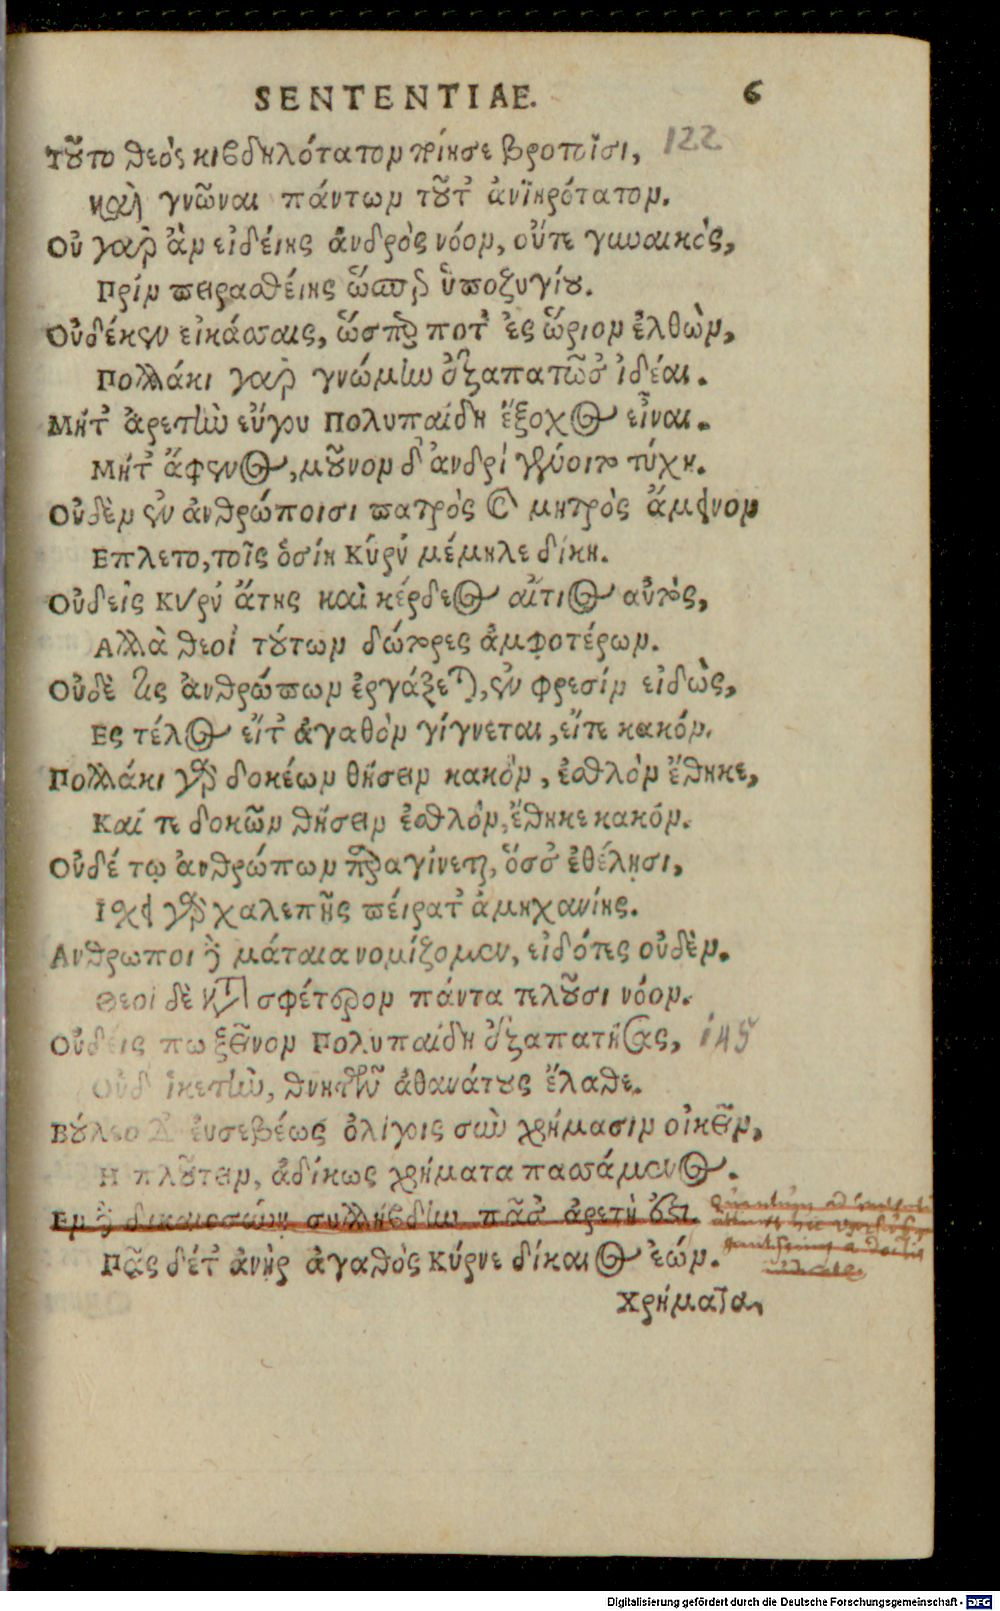 SENTENTIAE. 6
Τοῦτο θεὸς κιβδηλότατον ποίησε βροτοῖσι, 122
καὶ γνῶναι πάντων τοῦτ' ἀνιηρότατον.
Οὐ γὰρ ἂν εἰδείης ἀνδρὸς νόον, οὔτε γυναικὸς,
Πρὶν πειραθείης ὥσπερ ὑποζυγίου.
Οὐδέκεν εἰκάσσαις, ὥσπερ ποτ' ἐς ὥριον ἐλθὼν,
Πολλάκι γὰρ γνώμην ἐξαπατῶσ' ἰδέαι.
Μήτ' ἀρετὴν εὔχου Πολυπαίδη ἔξοχος εἶναι.
Μήτ' ἄφενος, μοῦνον δ' ἀνδρὶ γένοιτο τύχη.
Οὐδὲν ἐν ἀνθρώποισι πατρὸς καὶ μητρὸς ἄμεινον
Επλετο, τοῖς ὁσίη Κύρνε μέμηλε δίκη.
Οὐδεὶς Κύρνε ἄτης καὶ κέρδεος αἴτιος αὐτὸς,
Αλλὰ θεοὶ τούτων δώτορες ἀμφοτέρων.
Οὐδέ τις ἀνθρώπων ἐργάζεται, ἐν φρεσὶν εἰδὼς,
Ες τέλος εἴτ' ἀγαθὸν γίγνεται, εἴτε κακόν.
Πολλάκι γὰρ δοκέων θήσειν κακὸν, ἐσθλὸν ἔθηκε,
Καί τε δοκῶν θήσειν ἐσθλὸν, ἔθηκε κακόν.
Οὐδέ τῳ ἀνθρώπων παραγίνεται, ὅσσ' ἐθέλησι,
Ισχει γὰρ χαλεπῆς πείρατ' ἀμηχανίης.
Ανθρωποι δὲ μάταια νομίζομεν, εἰδότες οὐδὲν.
Θεοὶ δὲ κατὰ σφέτερον πάντα τελοῦσι νόον.
Οὐδείς πω ξεῖνον Πολυπαίδη ἐξαπατήσας, 145
Οὐδ' ἱκετὴν, θνητῶν ἀθανάτους ἔλαθε.
Βούλεο δ' εὐσεβέως ὀλίγοις σὺν χρήμασιν οἰκεῖν,
Η πλουτεῖν, ἀδίκως χρήματα πασσάμενος.
Εν δὲ δικαιοσύνῃ συλλήβδην πᾶσ' ἀρετή ἐστι.
Πᾶς δέτ' ἀνὴρ ἀγαθὸς Κύρνε δίκαιος ἐών.
Χρήματα,
Digitalisierung gefördert durch die Deutsche Forschungsgemeinschaft - DFG